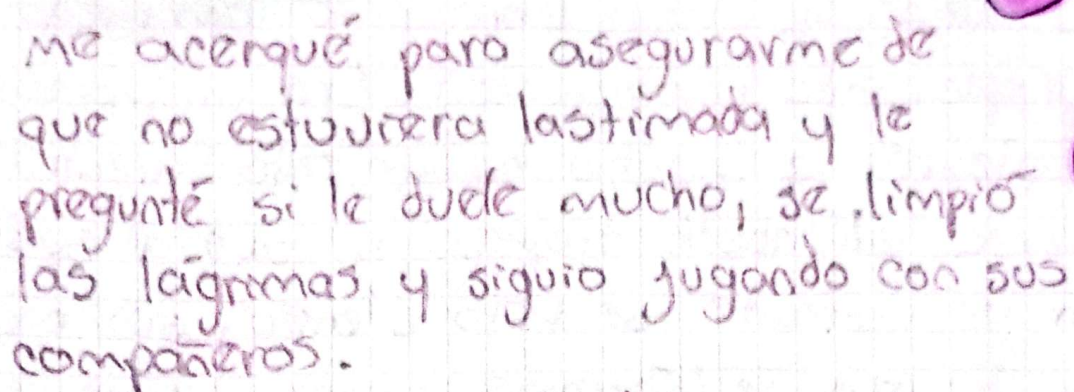 me acerqué para asegurarme de
que no estuviera lastimada y le
pregunté si le duele mucho, se limpió
las lágrimas y siguio jugando con sus
compañeros.